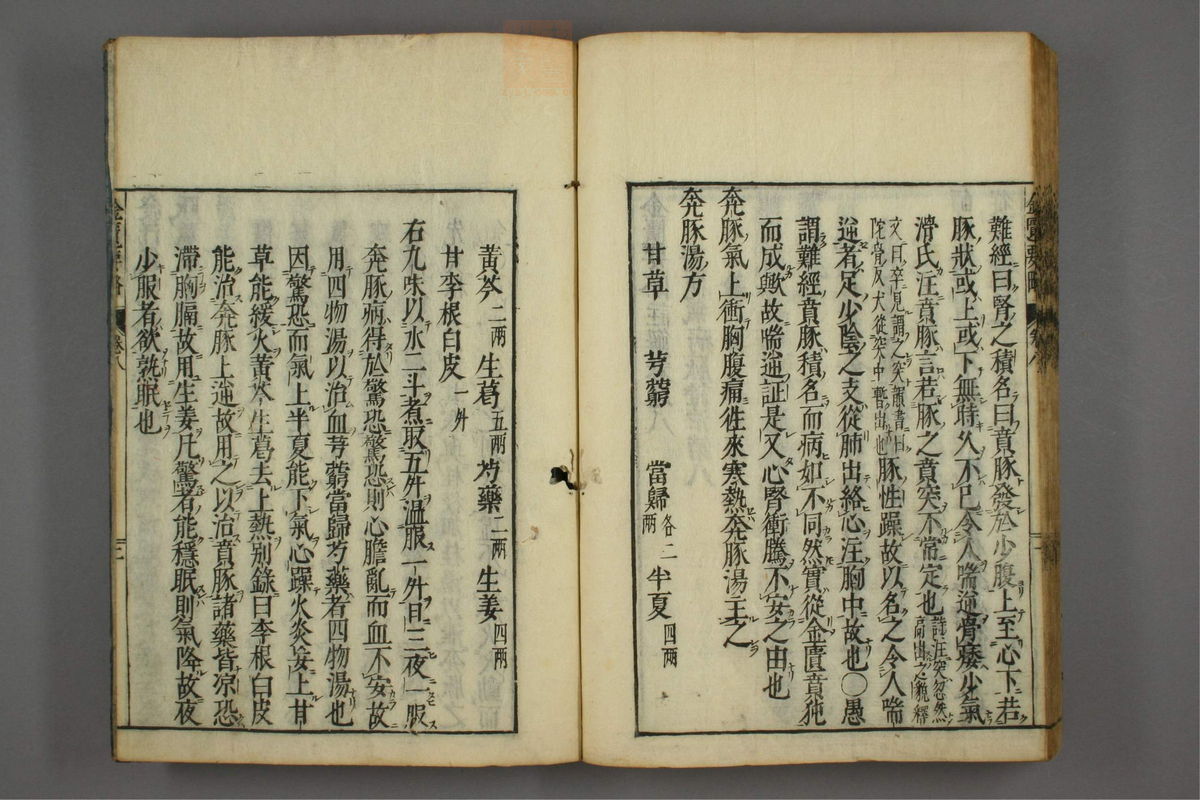 難經曰腎之積名曰賁豚發於少腹上至心下若
豚狀或上或下無時久不已令人喘逆骨痿少氣
滑氏注賁豚言若豚之賁突不常定也
說注突忽然
高出之貌釋
文曰卒見謂之突韻書曰
從穴犬從穴中暫出也
豚性躁故以名之令人喘
逆者足少陰之支從肺出絡心注胸中故也○愚
謂難經賁豚積名而病如不同然實從金匱賁㹠
而成歟故喘逆証是又心腎衝騰不安之由也
奔豚氣上衝胸腹痛徃來寒熱奔豚湯主之
奔豚湯方
甘草 芎藭 當歸各二兩 半夏四兩
黃芩二兩 生葛五兩 芍藥二兩 生姜四兩
甘李根白皮一升
右九味以水二斗煮取五升温服一升日三夜一服
奔豚病得於驚恐驚恐則心膽亂而血不安故
用四物湯以治血芎藭當歸芍藥者四物湯也
因驚恐而氣上半夏能下氣心躁火炎妄上甘
草能緩火黃芩生葛去上熱別錄曰李根白皮
能治奔豚上逆故用之以治賁豚諸藥皆凉恐
滯胸膈故用生姜凡驚者能穩眠則氣降故夜
少服者欲熟眠也
金匱要略
卷八
二